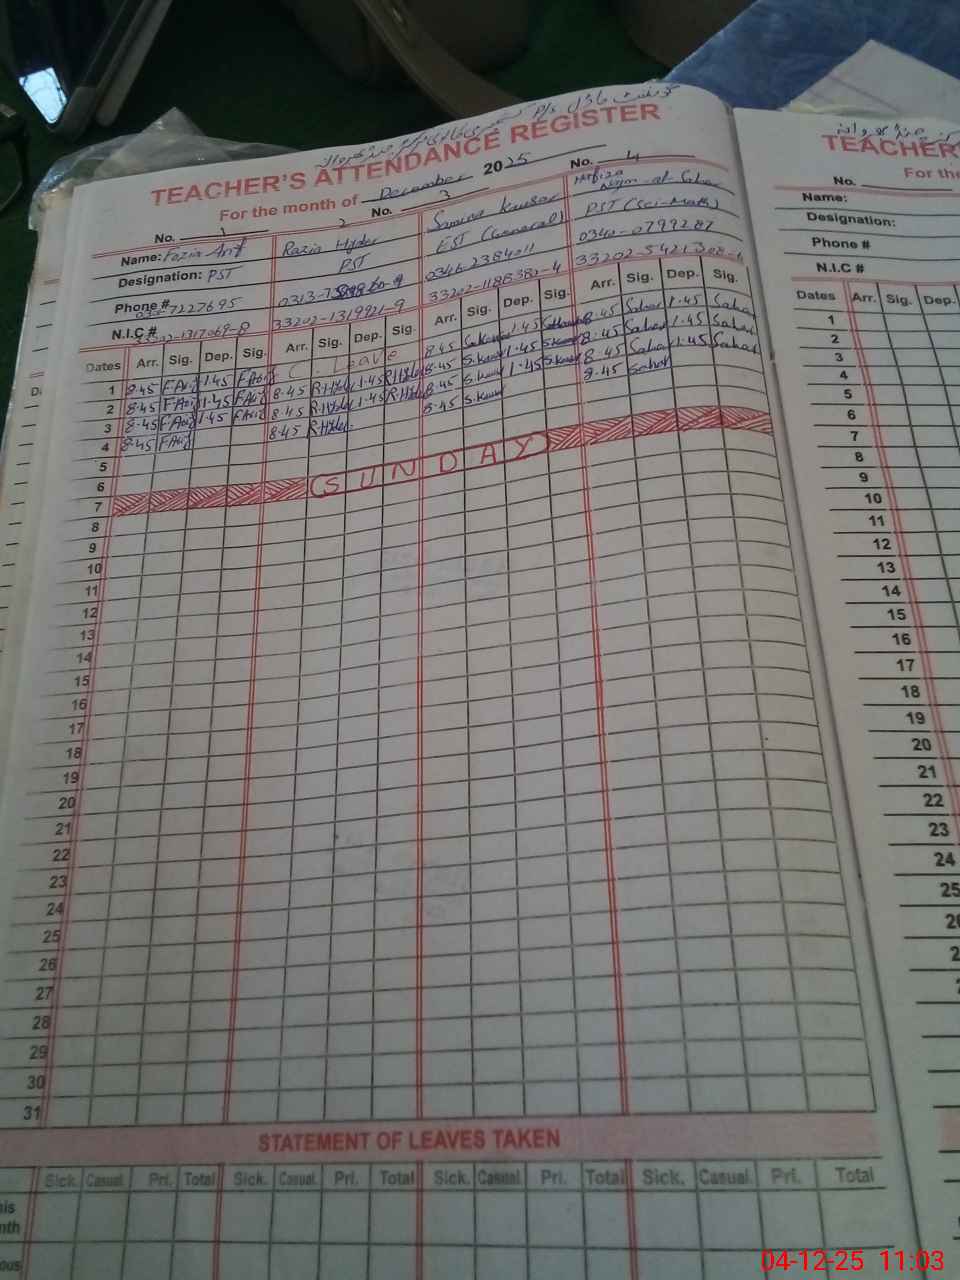 TEACHER'S ATTENDANCE REGISTER
For the month of December 2025
No. 1 2 No. 3 No. 4
Name: Fozia Arif Razia Hyder Samina Kausar Hafiza Najm-al-Sahar
Designation: PST PST EST (General) PST (Sci-Math)
Phone # 7227695 0313- 0346-2384011 0340-0799287
N.I.C # 33202-1317069-8 33202-1319921-9 33202-1188380-4 33202-5421308-
Dates Arr. Sig. Dep. Sig. Arr. Sig. Dep. Sig. Arr. Sig. Dep. Sig. Arr. Sig. Dep. Sig.
1 8.45 F Arif 1.45 F Arif C. Leave 8.45 1.45 8.45 Sahar 1.45 Sahar
2 8.45 F Arif 1.45 F Arif 8.45 R.Hyder 1.45 R.Hyder 8.45 S.Kausar 1.45 S.Kausar 8.45 Sahar 1.45 Sahar
3 8.45 F Arif 1.45 F Arif 8.45 R.Hyder 1.45 R.Hyder 8.45 S.Kausar 1.45 S.Kausar 8.45 Sahar 1.45 Sahar
4 8.45 F Arif 8.45 R.Hyder 8.45 S.Kausar 8.45 Sahar
5
6
7 SUNDAY
8
9
10
11
12
13
14
15
16
17
18
19
20
21
22
23
24
25
26
27
28
29
30
31
STATEMENT OF LEAVES TAKEN
Sick. Casual. Pri. Total Sick. Casual. Pri. Total Sick. Casual. Pri. Total Sick. Casual. Pri. Total
TEACHER
For the
No.
Name:
Designation:
Phone #
N.I.C #
Dates Arr. Sig. Dep.
1
2
3
4
5
6
7
8
9
10
11
12
13
14
15
16
17
18
19
20
21
22
23
24
25
04-12-25 11:03